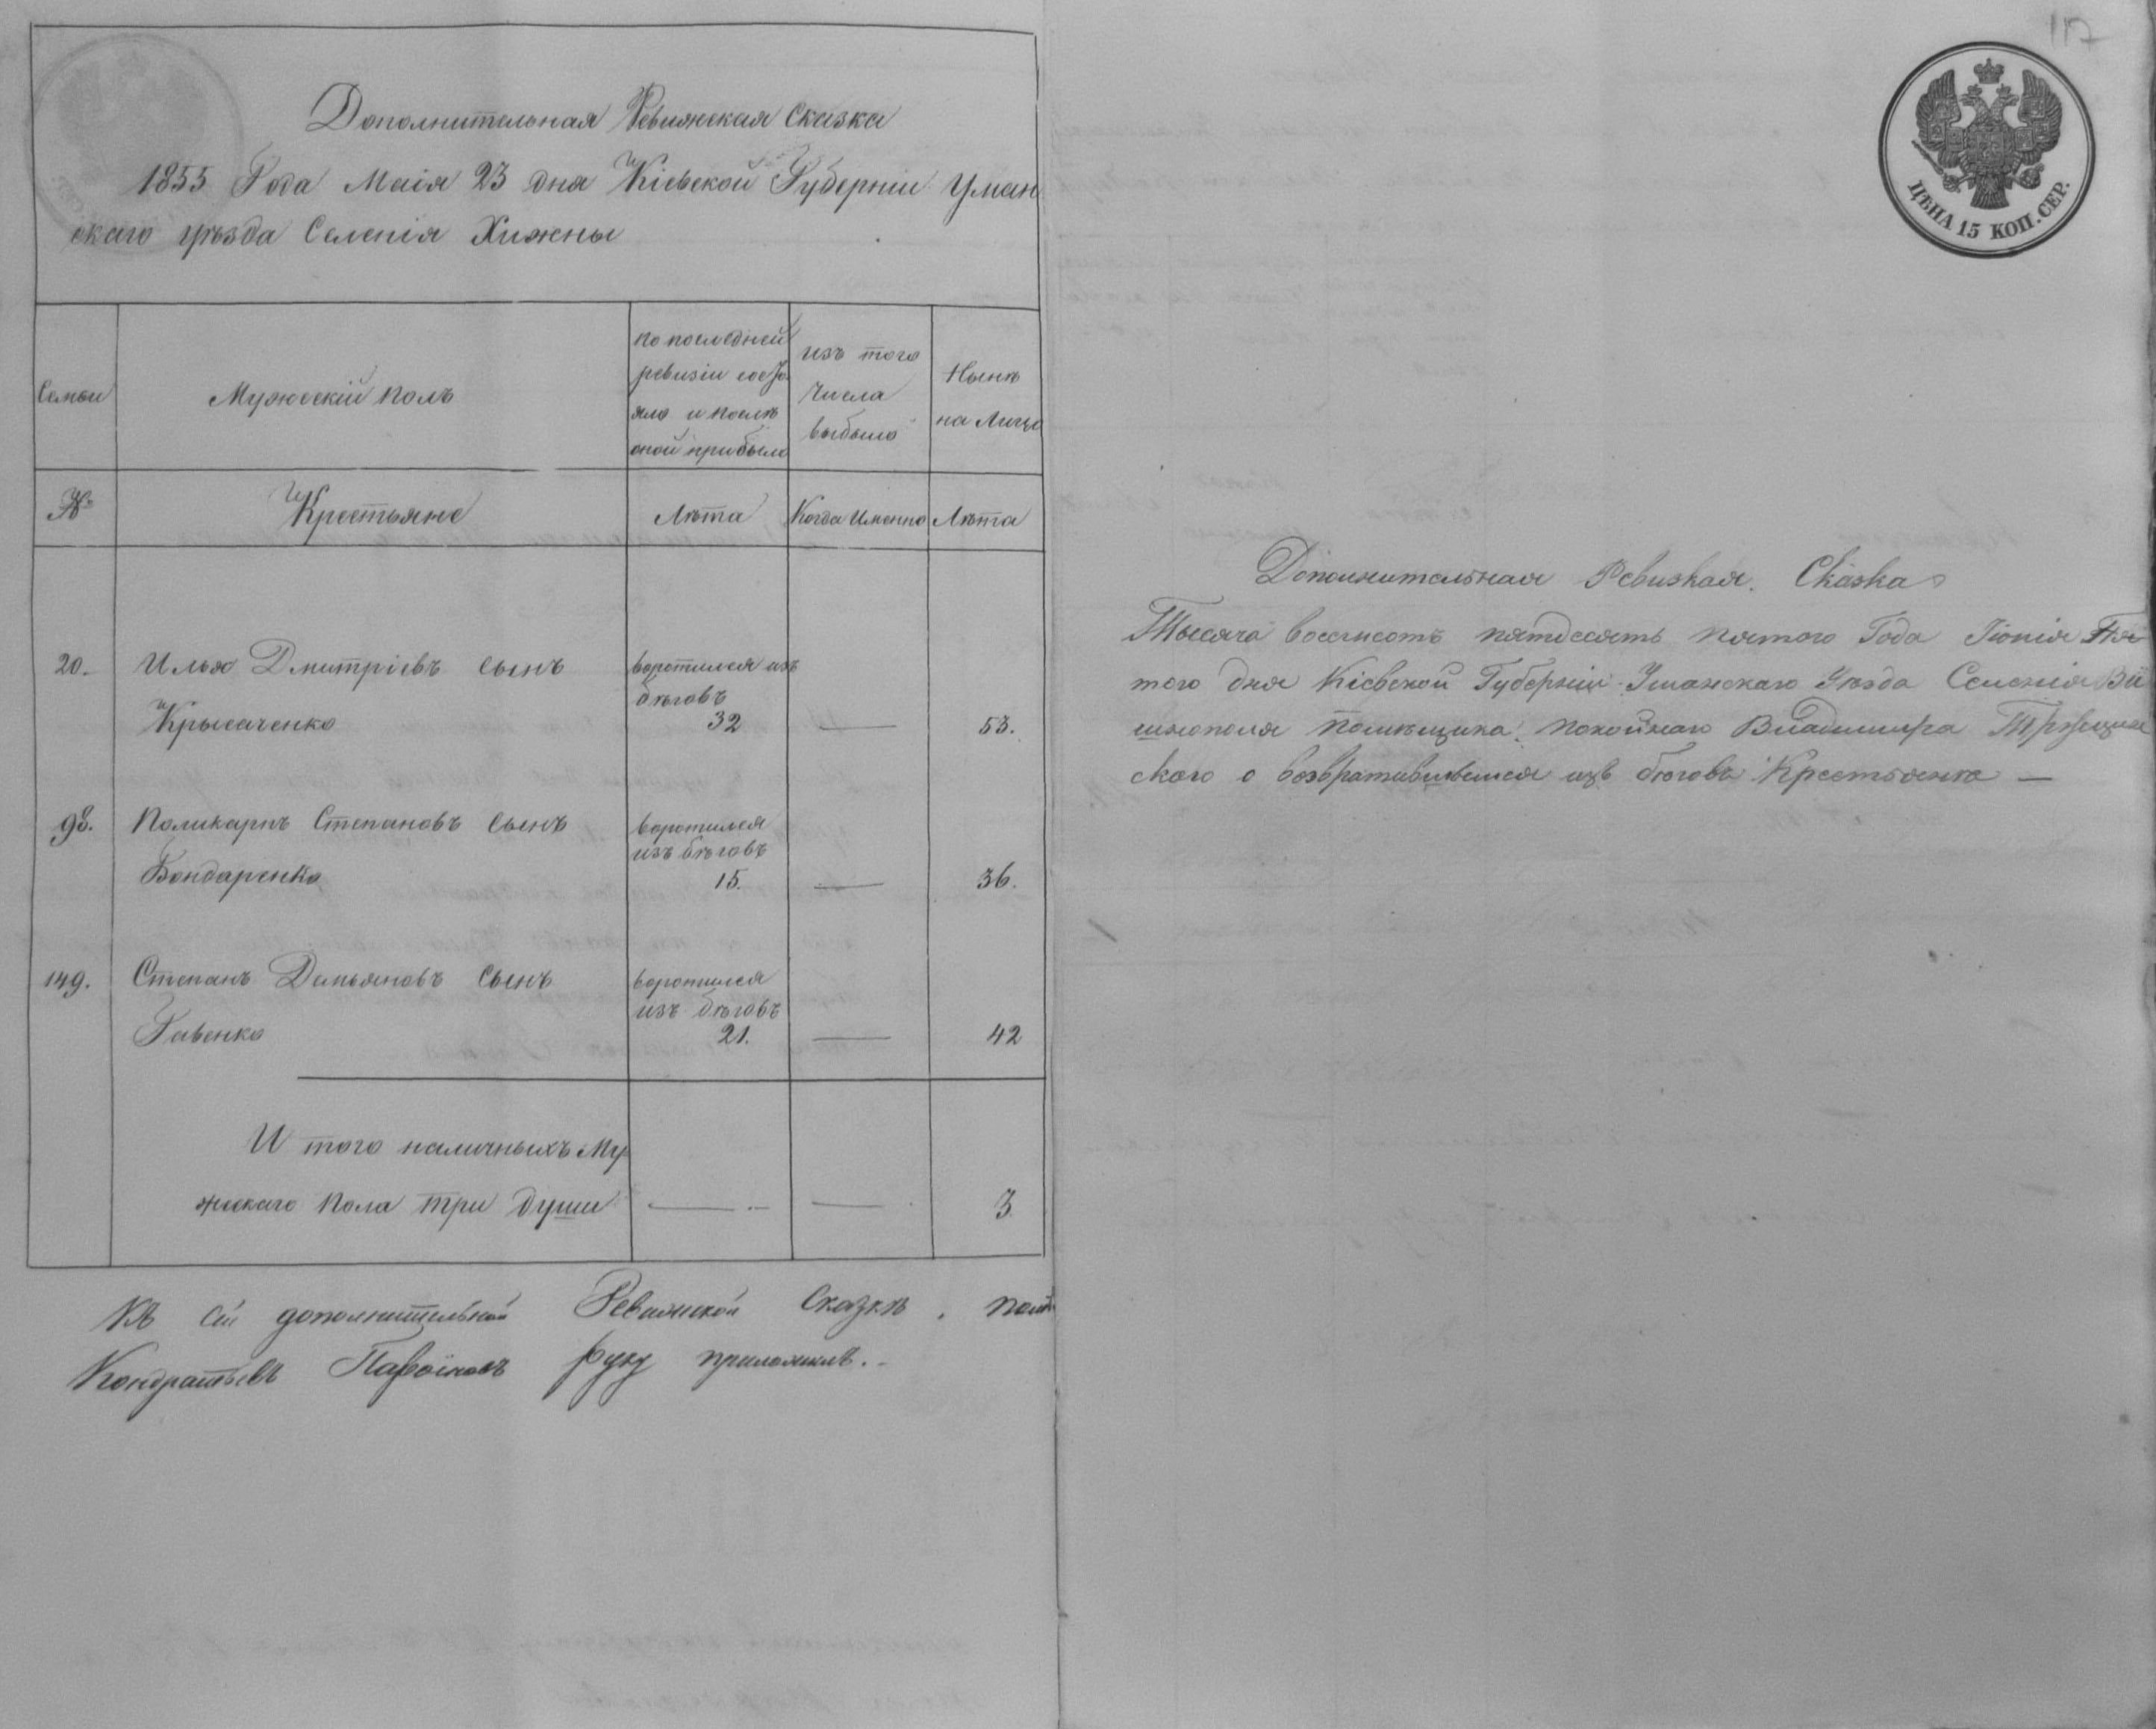 Дополнительная Ревижская Сказка
1855 Года Маія 23 дня Кіевской Губерніи Уман
скаго уѣзда Селенія Хижны
Семьи
Мужескій полъ
по последней
ревизіи состо
яло и послѣ
оной прибыло
изъ того
числа
выбыло
Нынѣ
на Лицо
№
Крестьяне
Лѣта
Когда Именно
Лѣта
20.
Илья Дмитріевъ сынъ
Крысаченко
воротился изъ
бѣговъ
32
53.
98.
Поликарпъ Степановъ сынъ
Бондаренко
воротился
изъ бѣговъ
15.
36.
149.
Степанъ Демьяновъ Сынъ
Гавенко
воротился
изъ бѣговъ
21.
42
И того наличныхъ Му
жескаго Пола три души
3
Къ сей дополнительной Ревижской Сказкѣ
Кондратьевъ руку приложилъ.
117
ЦѢНА 15 КОП. СЕР.
Дополнительная Ревизкая. Сказка
Тысяча восемсотъ пятдесять пятого Года Іюнія Пя
того дня Кіевской Губерніи Уманскаго Уѣзда Селенія Ви
шнополя помѣщика покойнаго Владимира Тржецяк
ского о возвратившемся изъ бѣговъ Крестьянѣ —